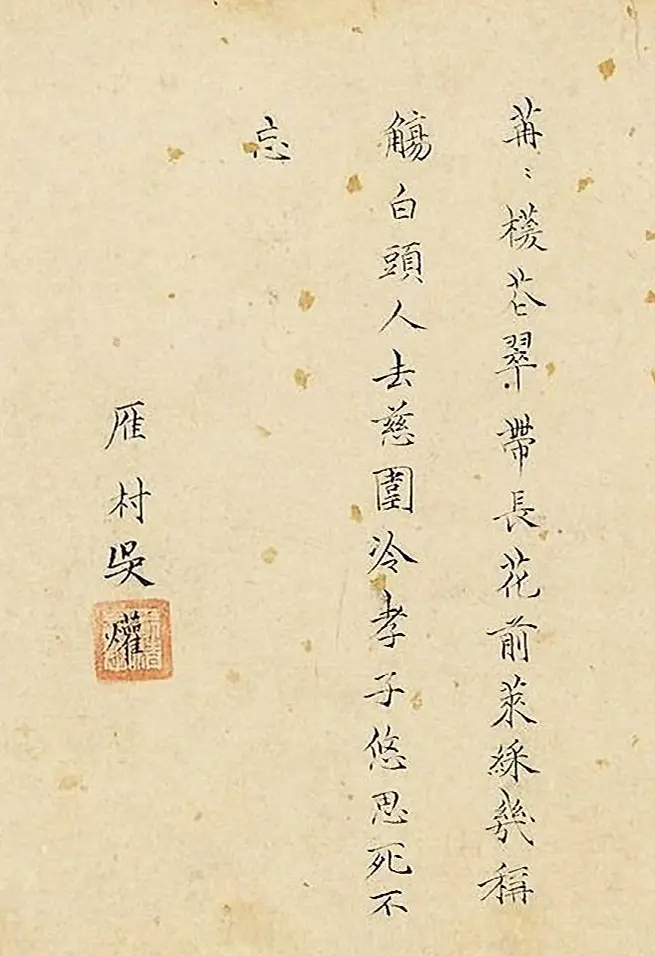 苒〻模苍翠帶長花前萊綵幾稱
觴白頭人去慈闈冷孝子悠思死不
忘
雁村吳爟